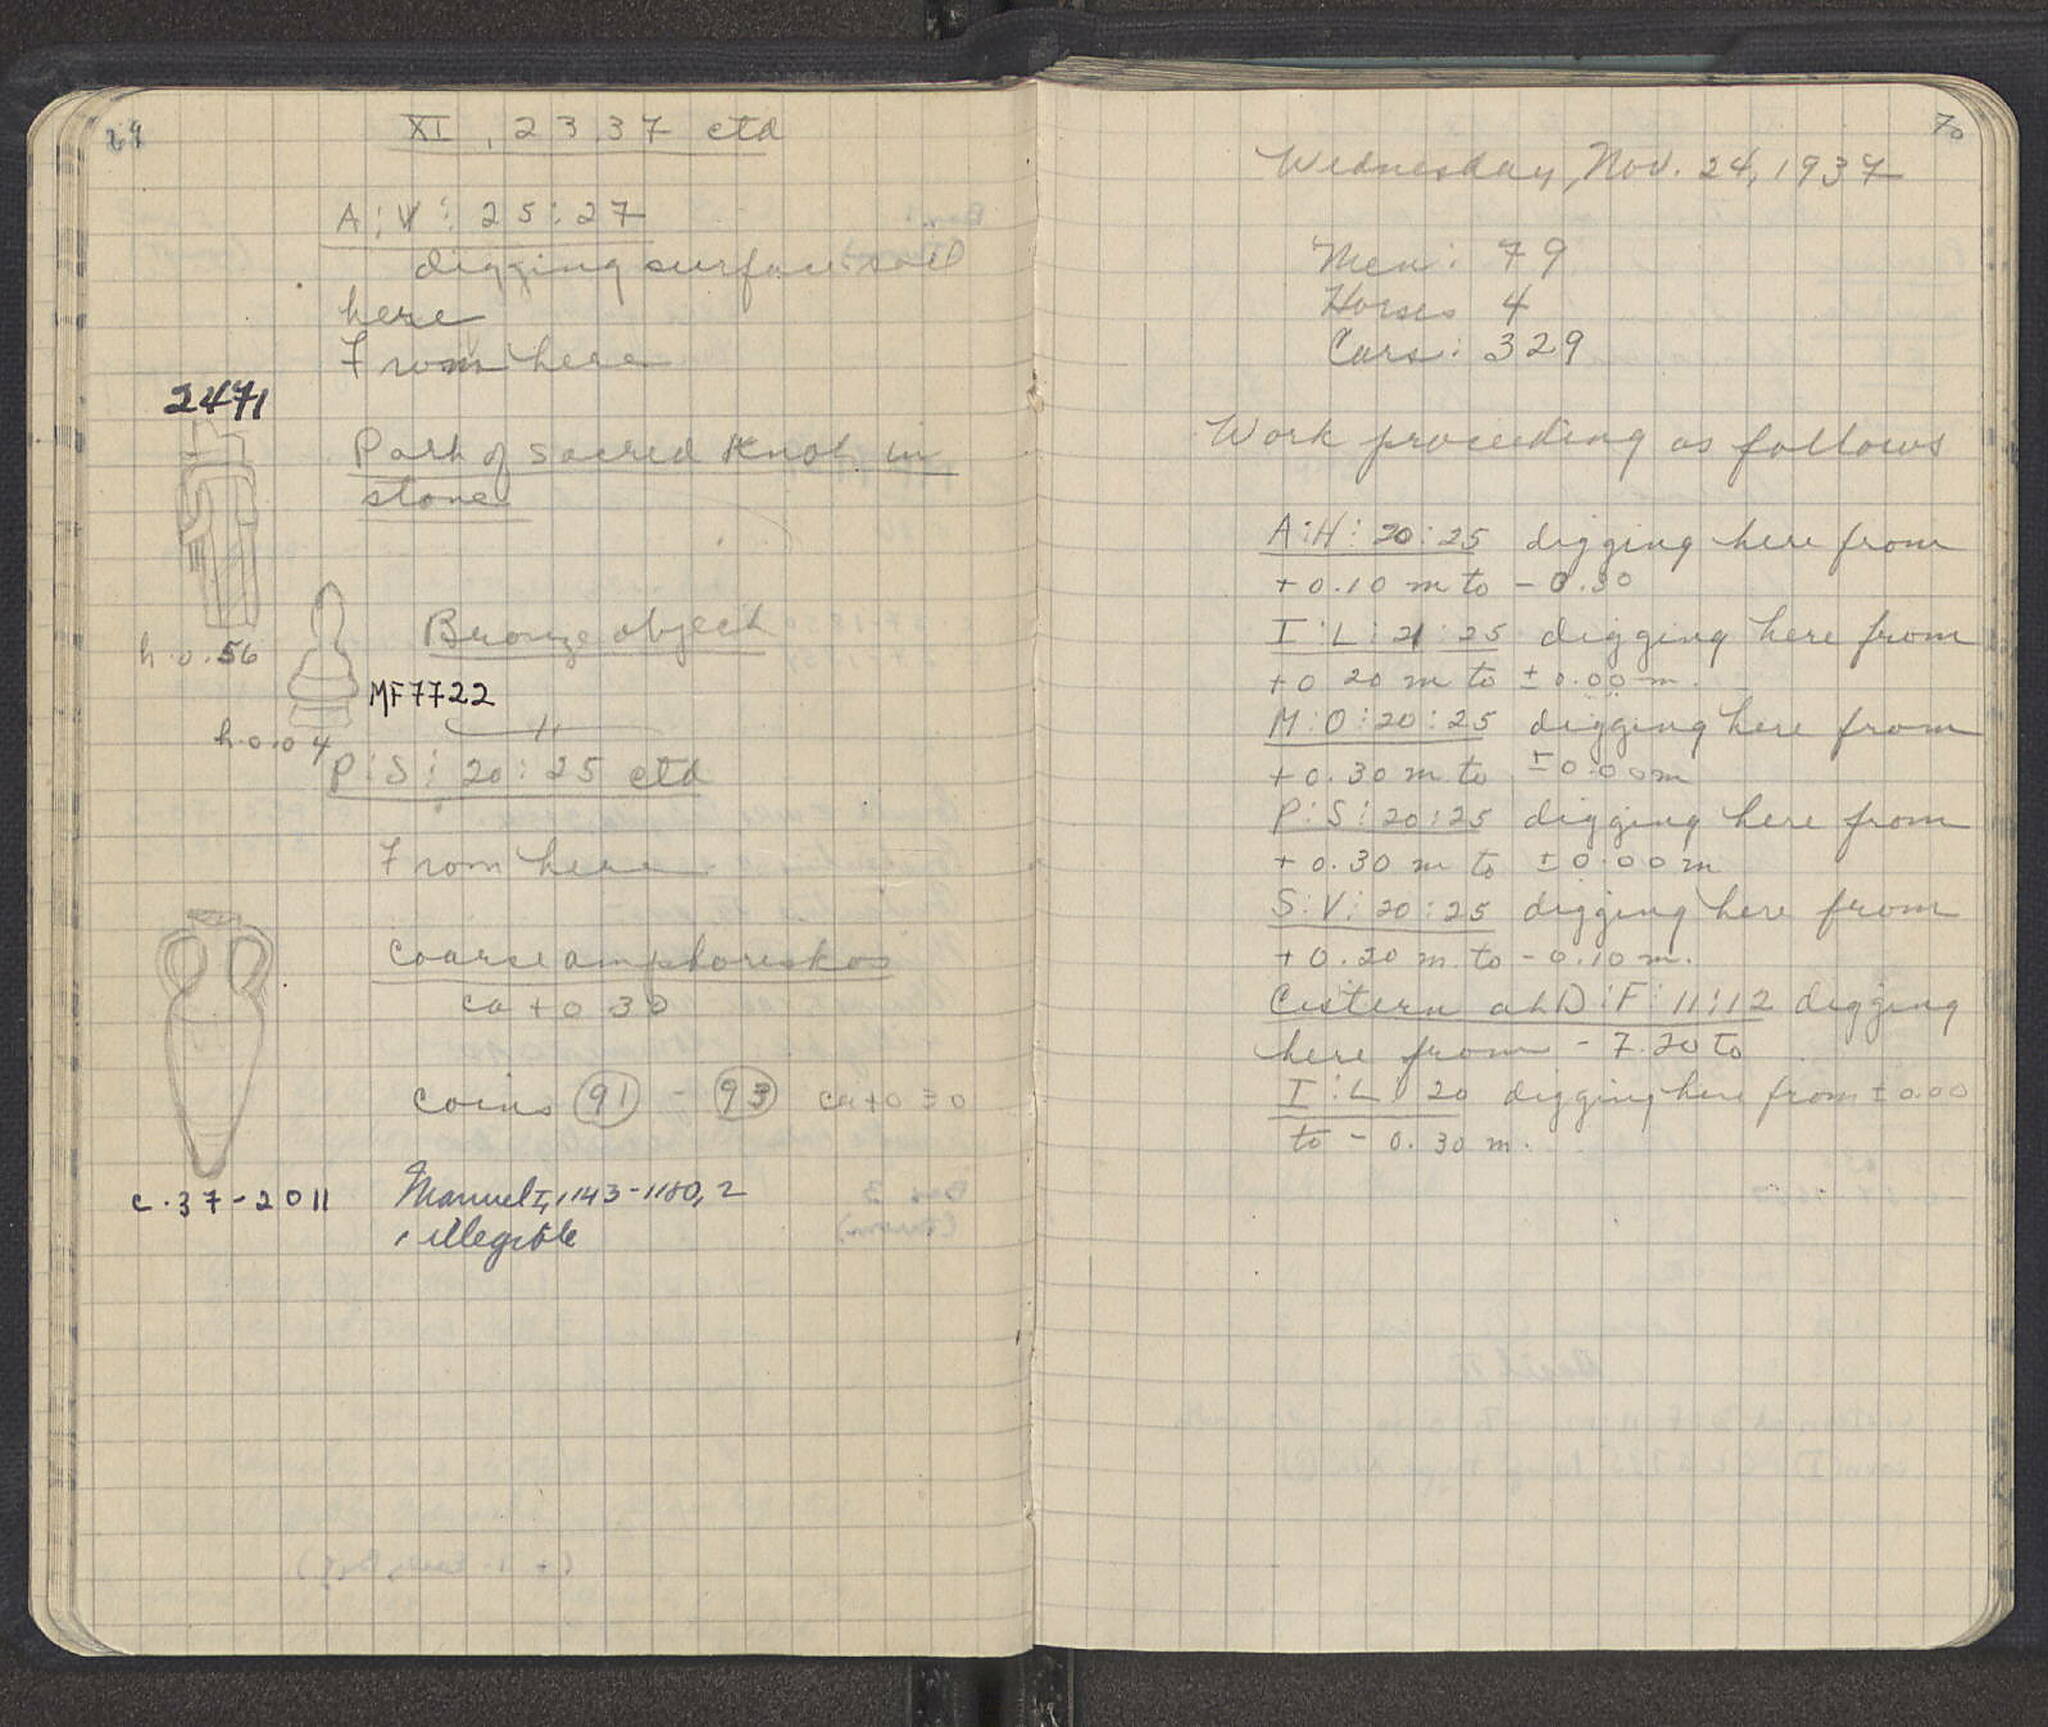 69
XI, 23.37 ctd
A:V: 25:27
digging surface soil
here
From here
2471
Part of sacred knot in
stone
h. 0.56
Bronze object
MF7722
h. 0.04
P:S: 20:25 ctd
From here
coarse amphoreskos
ca + 0 30
coins 91 - 93 ca + 0 30
C.37-2011
Manuel I, 1143-1180, 2
1 illegible
70
Wednesday, Nov. 24, 1937
Men: 79
Horses 4
Cars: 329
Work proceeding as follows
A:H: 20:25 digging here from
+0.10 m to - 0.30
I:L: 21:25 digging here from
+0 20 m to ±0.00 m.
M:O:20:25 digging here from
+0.30 m to ±0.00m
P:S:20:25 digging here from
+0.30 m to ±0.00 m
S:V:20:25 digging here from
+0.20 m. to - 0.10 m.
Cistern at D:F: 11:12 digging
here from - 7.20 to
I:L: 20 digging here from ±0.00
to - 0.30 m.